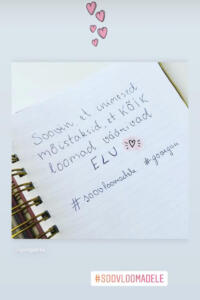 Soovin, et inimesed
mõistaksid, et KÕIK
loomad väärivad
ELU
#soovloomadele #govegan
#SOOVLOOMADELE